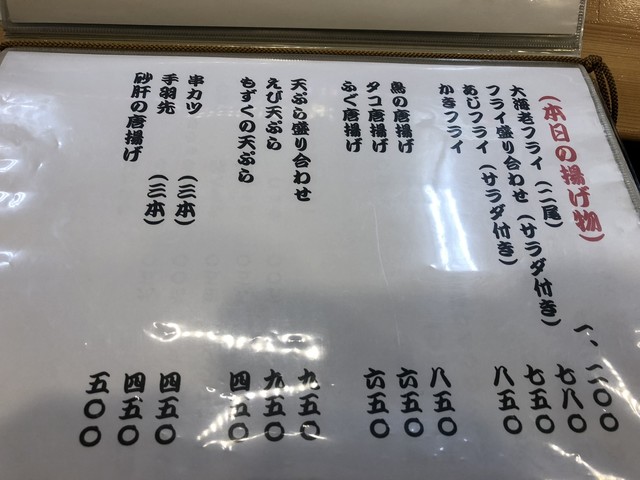 (本日の揚げ物)
大海老フライ (二尾) 一、二〇〇
フライ盛り合わせ (サラダ付き) 七八〇
あじフライ (サラダ付き) 七五〇
かきフライ 八五〇
鳥の唐揚げ 八五〇
タコ唐揚げ 六五〇
ふぐ唐揚げ 六五〇
天ぷら盛り合わせ 九五〇
えび天ぷら 九五〇
もずくの天ぷら 四五〇
串カツ (三本) 四五〇
手羽先 (三本) 四五〇
砂肝の唐揚げ 五〇〇